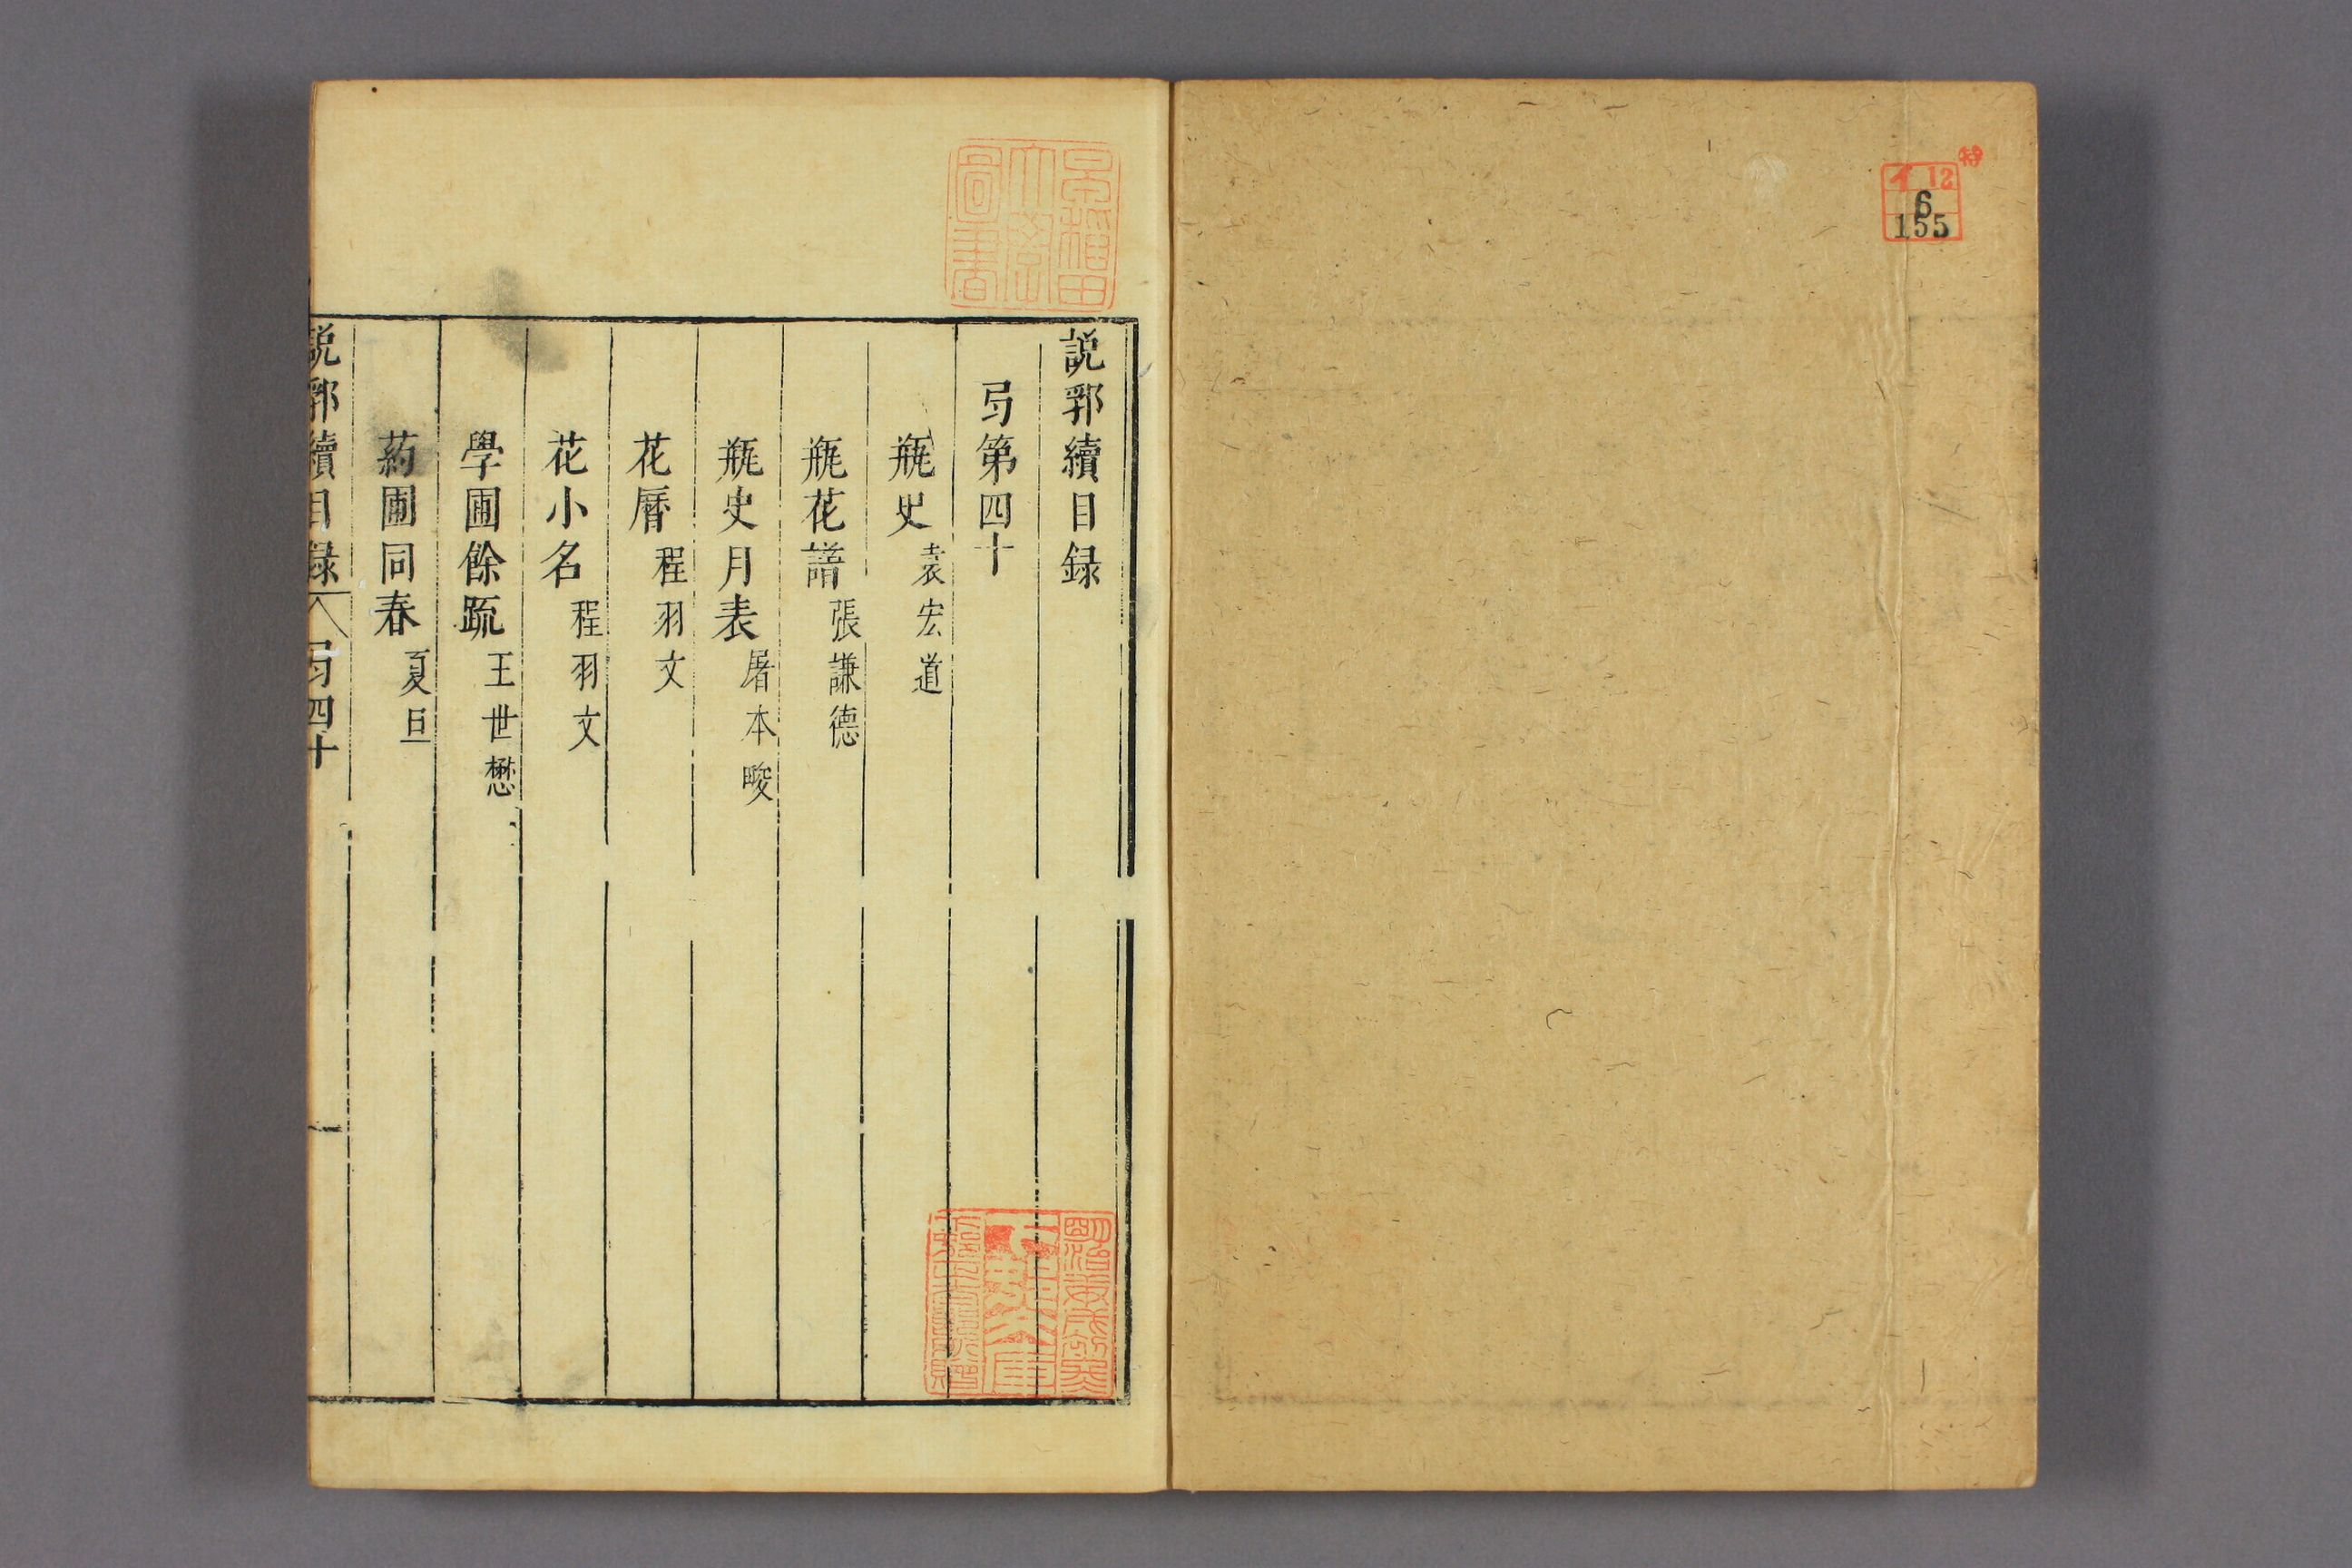 特
イ 12
6
155
早稲田
大學
圖書
説郛續目録
弓第四十
瓶史 袁宏道
瓶花譜 張謙德
瓶史月表 屠本畯
花曆 程羽文
花小名 程羽文
學圃餘疏 王世懋
葯圃同春 夏旦
説郛續目録 弓四十
一